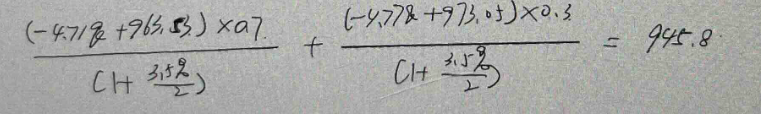 \frac{(-4.71x + 963.53) × 0.7}{(1 + \frac{3.5%}{2})} + \frac{(-4.77x + 973.05) × 0.3}{(1 + \frac{3.5%}{2})} = 945.8